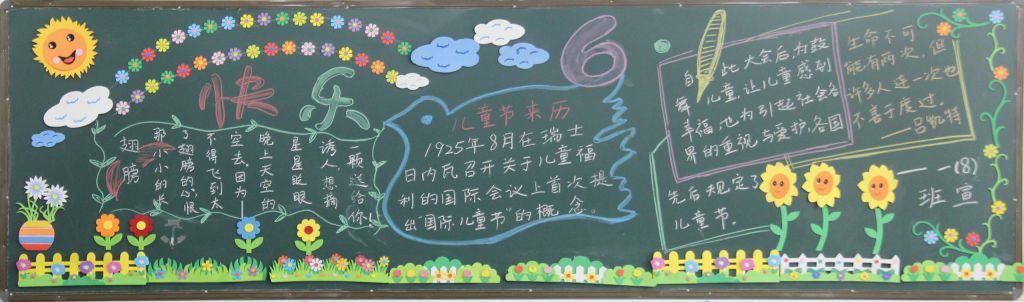 快乐
6
翅膀
那小小的长
了翅膀的心，恨
不得飞到太
空去，因为
晚上天空的
星星眨眼
诱人，想摘
一颗送给你！
儿童节来历
1925年8月在瑞士
日内瓦召开关于儿童福
利的国际会议上首次提
出“国际儿童节”的概念。
自此大会后，为鼓
舞儿童，让儿童感到
幸福，也为引起社会各
界的重视与爱护，各国
先后规定了
儿童节。
生命不可
能有两次，但
许多人连一次也
不善于度过。
——吕凯特
一一(8)
班宣